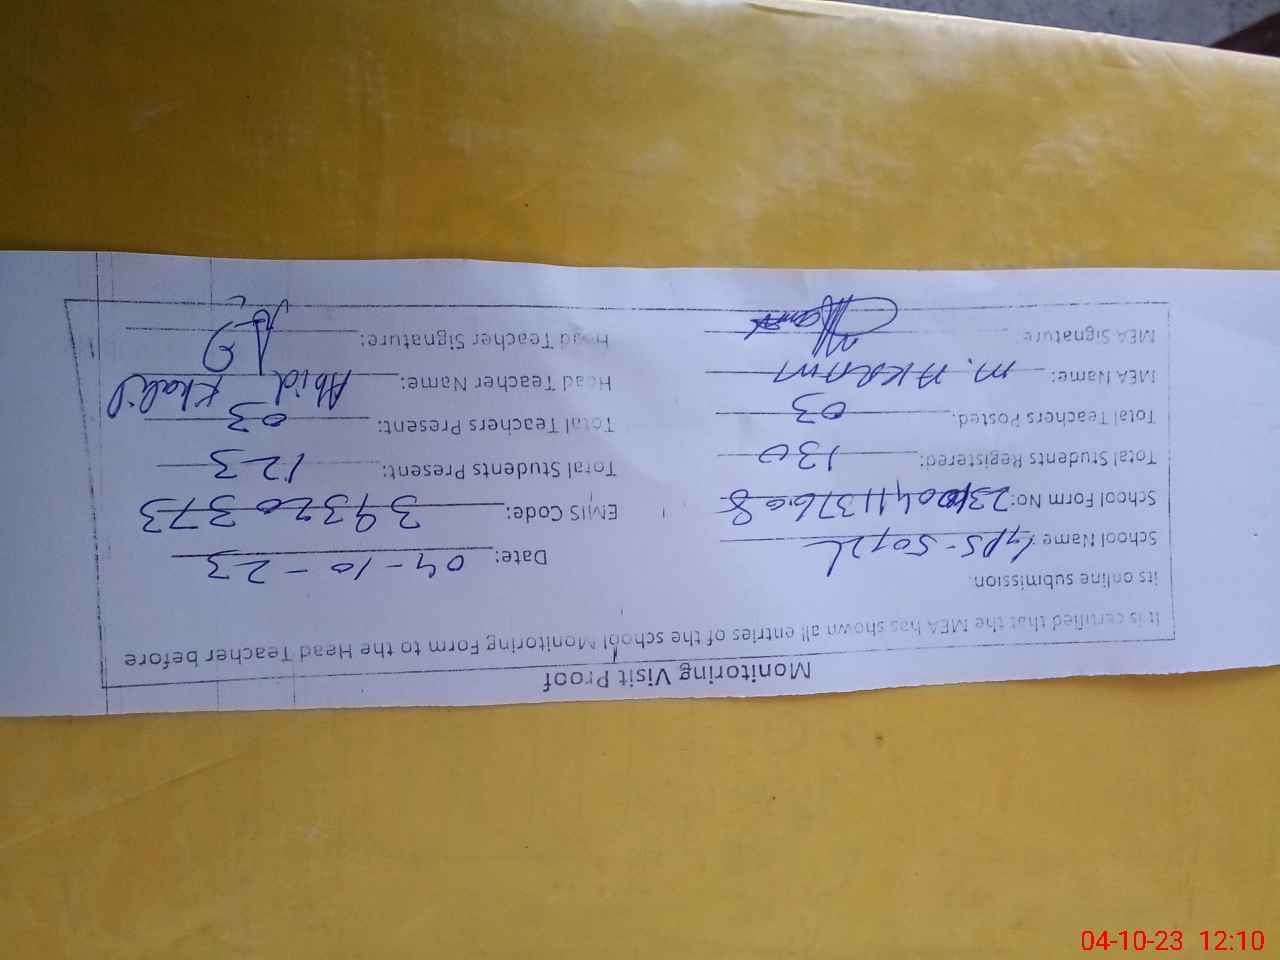 Monitoring Visit Proof
It is certified that the MEA has shown all entries of the school Monitoring Form to the Head Teacher before
its online submission.
School Name: GPS- Date: 04-10-23
School Form No: EMIS Code: 39320373
Total Students Registered: 130 Total Students Present: 123
Total Teachers Posted: 03 Total Teachers Present: 03
MEA Name: M. AKRAM Head Teacher Name: Abid Khalil
MEA Signature: Head Teacher Signature:
04-10-23 12:10